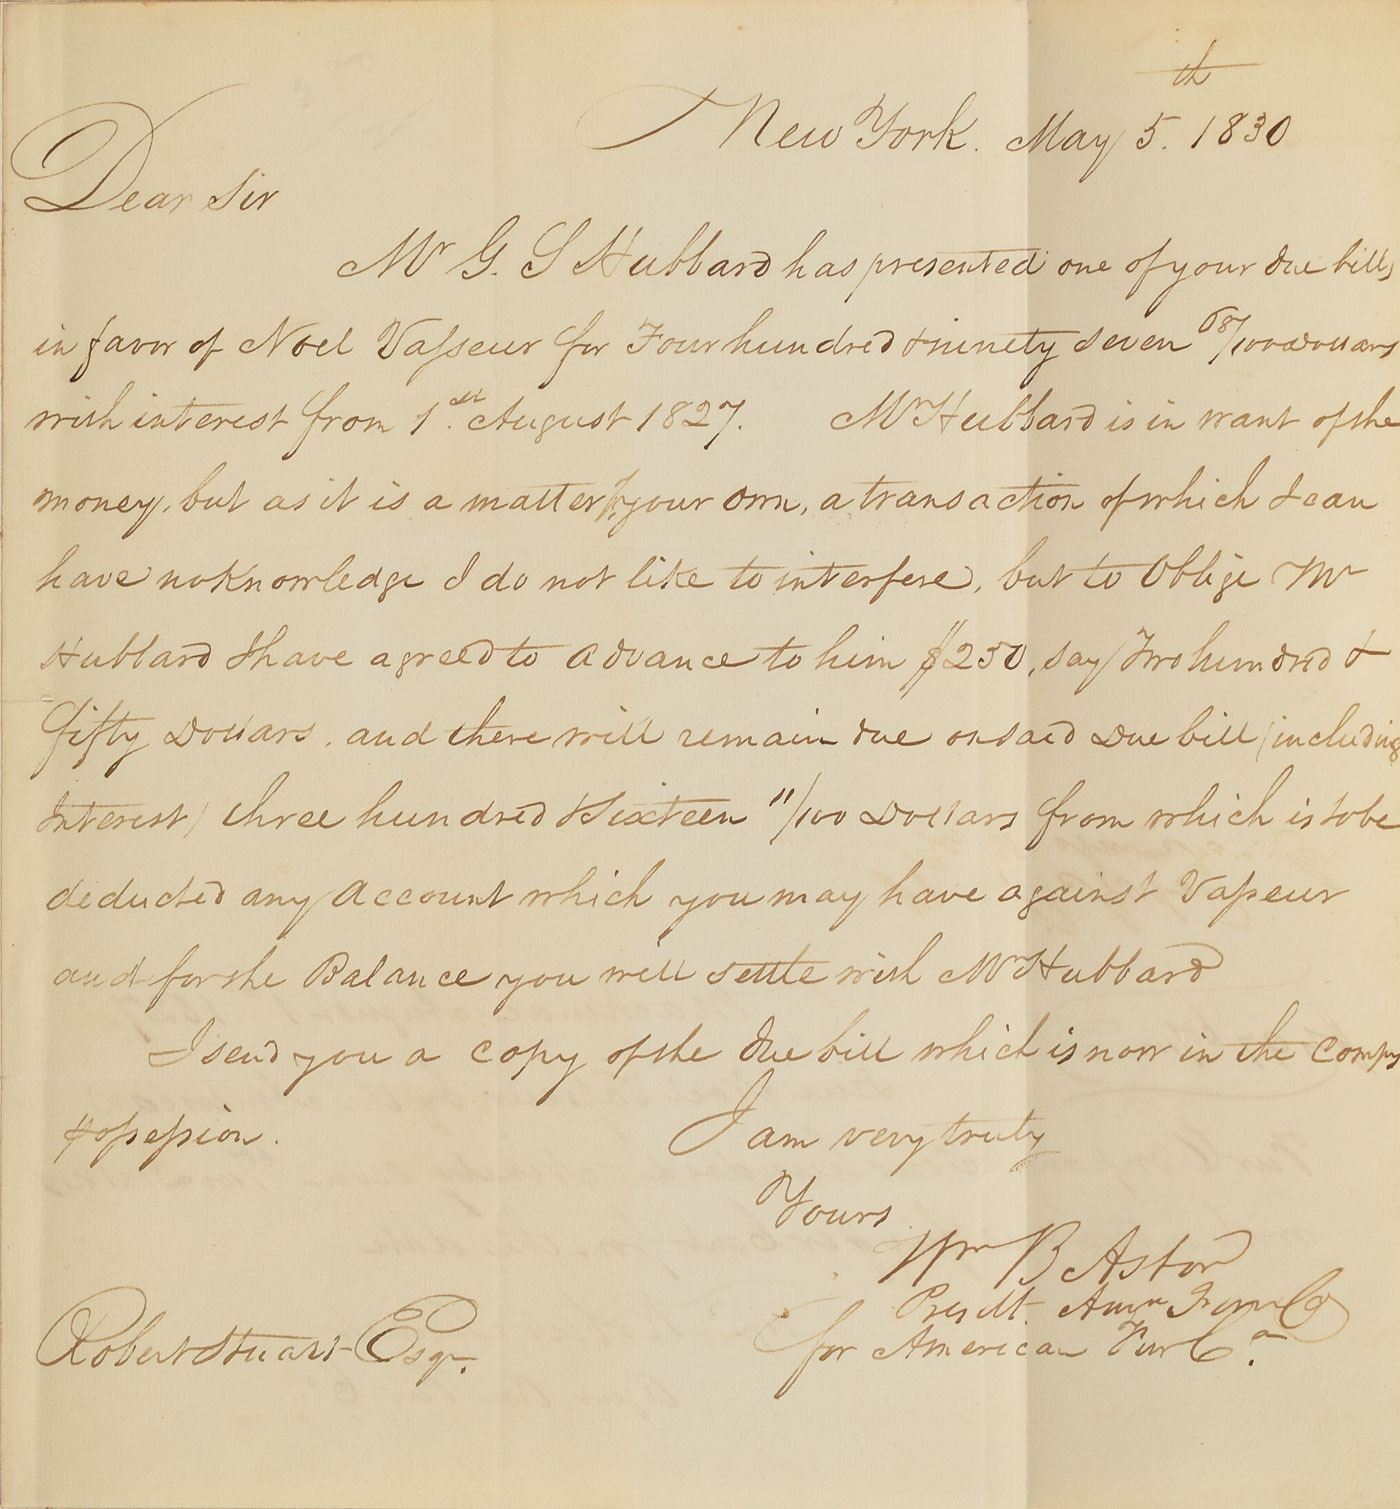 th
New York. May 5. 1830
Dear Sir
Mr G. S Hubbard has presented one of your due bills
in favor of Noel Vasseur for Four hundred & ninety seven 68/100 Dollars
with interest from 1st August 1827. Mr Hubbard is in want of the
money, but as it is a matter of your own, a transaction of which I can
have no Knowledge I do not like to interfere, but to Oblige Mr
Hubbard I have agreed to advance to him $250, say Two hundred &
fifty Dollars. and there will remain due on said Due bill (including
Interest) three hundred & Sixteen 11/100 Dollars from which is to be
deducted any Account which you may have against Vasseur
and for the Balance you will settle with Mr Hubbard
I send you a copy of the due bill which is now in the Compys
possession.
I am very truly
Yours
Wm B Astor
Presdt. Amn Fur Co
for American Fur Co.
Robert Stuart Esqr.